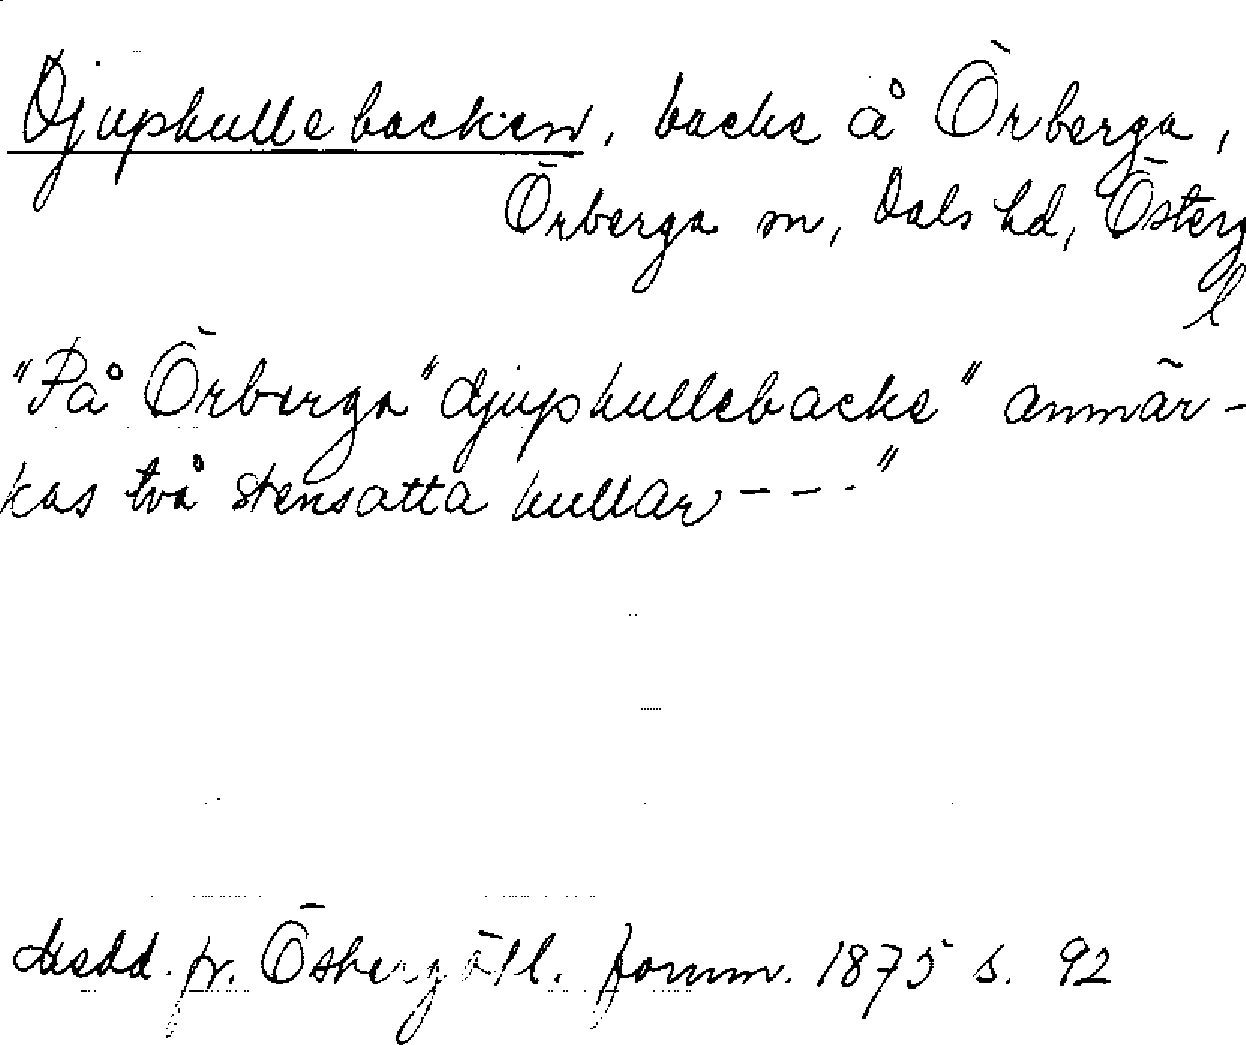 Djuphullebacken, backe å Örberga,
Örberga sn, Dals hd, Österg
l
"På Örberga "djuphullebacke" anmär-
kas två stensatta kullar - - - "
Medd. fr. Östergötl. fornm. 1875 s. 92